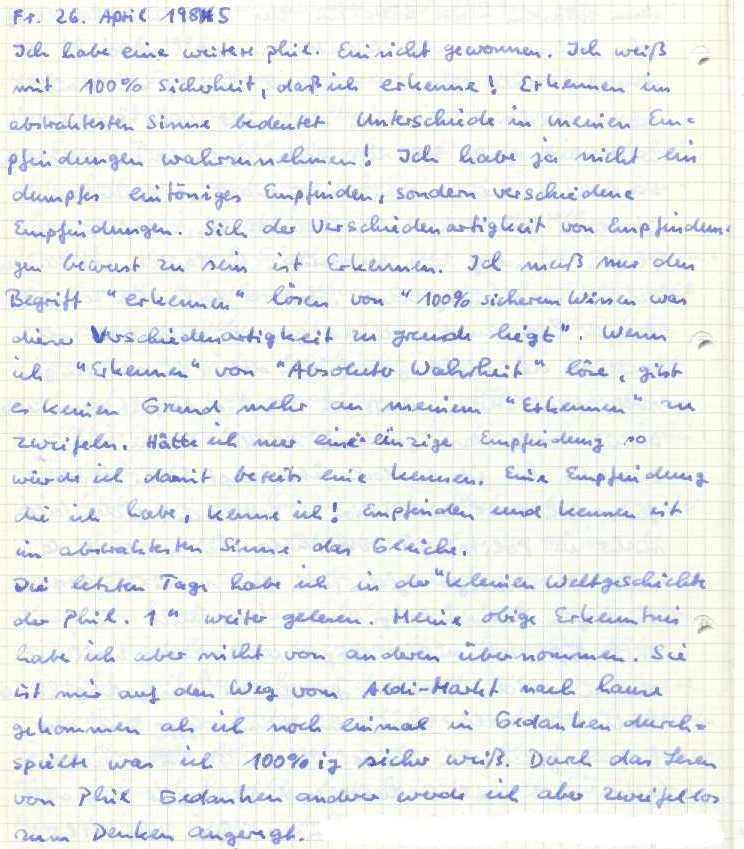 Fr. 26. April 1985
Ich habe eine weitere phil. Einsicht gewonnen. Ich weiß
mit 100% Sicherheit, daß ich erkenne! Erkennen im
abstraktesten Sinne bedeutet Unterschiede in meinen Em=
pfindungen wahrzunehmen! Ich habe ja nicht ein
dumpfes eintöniges Empfinden, sondern verschiedene
Empfindungen. Sich der Verschiedenartigkeit von Empfindun=
gen bewust zu sein ist Erkennen. Ich muß nur den
Begriff "erkennen" lösen von "100% sicherem Wissen was
dieser Verschiedenartigkeit zu grunde liegt". Wenn
ich "Erkennen" von "Absoluter Wahrheit" löse, gibt
es keinen Grund mehr an meinem "Erkennen" zu
zweifeln. Hätte ich nur eine einzige Empfindung so
würde ich damit bereits eine kennen. Eine Empfindung
die ich habe, kenne ich! Empfinden und kennen ist
im abstraktesten Sinne das Gleiche.
Die letzten Tage habe ich in der "kleinen Weltgeschichte
der Phil. 1" weiter gelesen. Meine obige Erkenntnis
habe ich aber nicht von anderen übernommen. Sie
ist mir auf den Weg vom Aldi-Markt nach hause
gekommen als ich noch einmal in Gedanken durch=
spielte was ich 100%ig sicher weiß. Durch das Lesen
von Phil Gedanken anderer werde ich aber zweifellos
zum Denken angeregt.